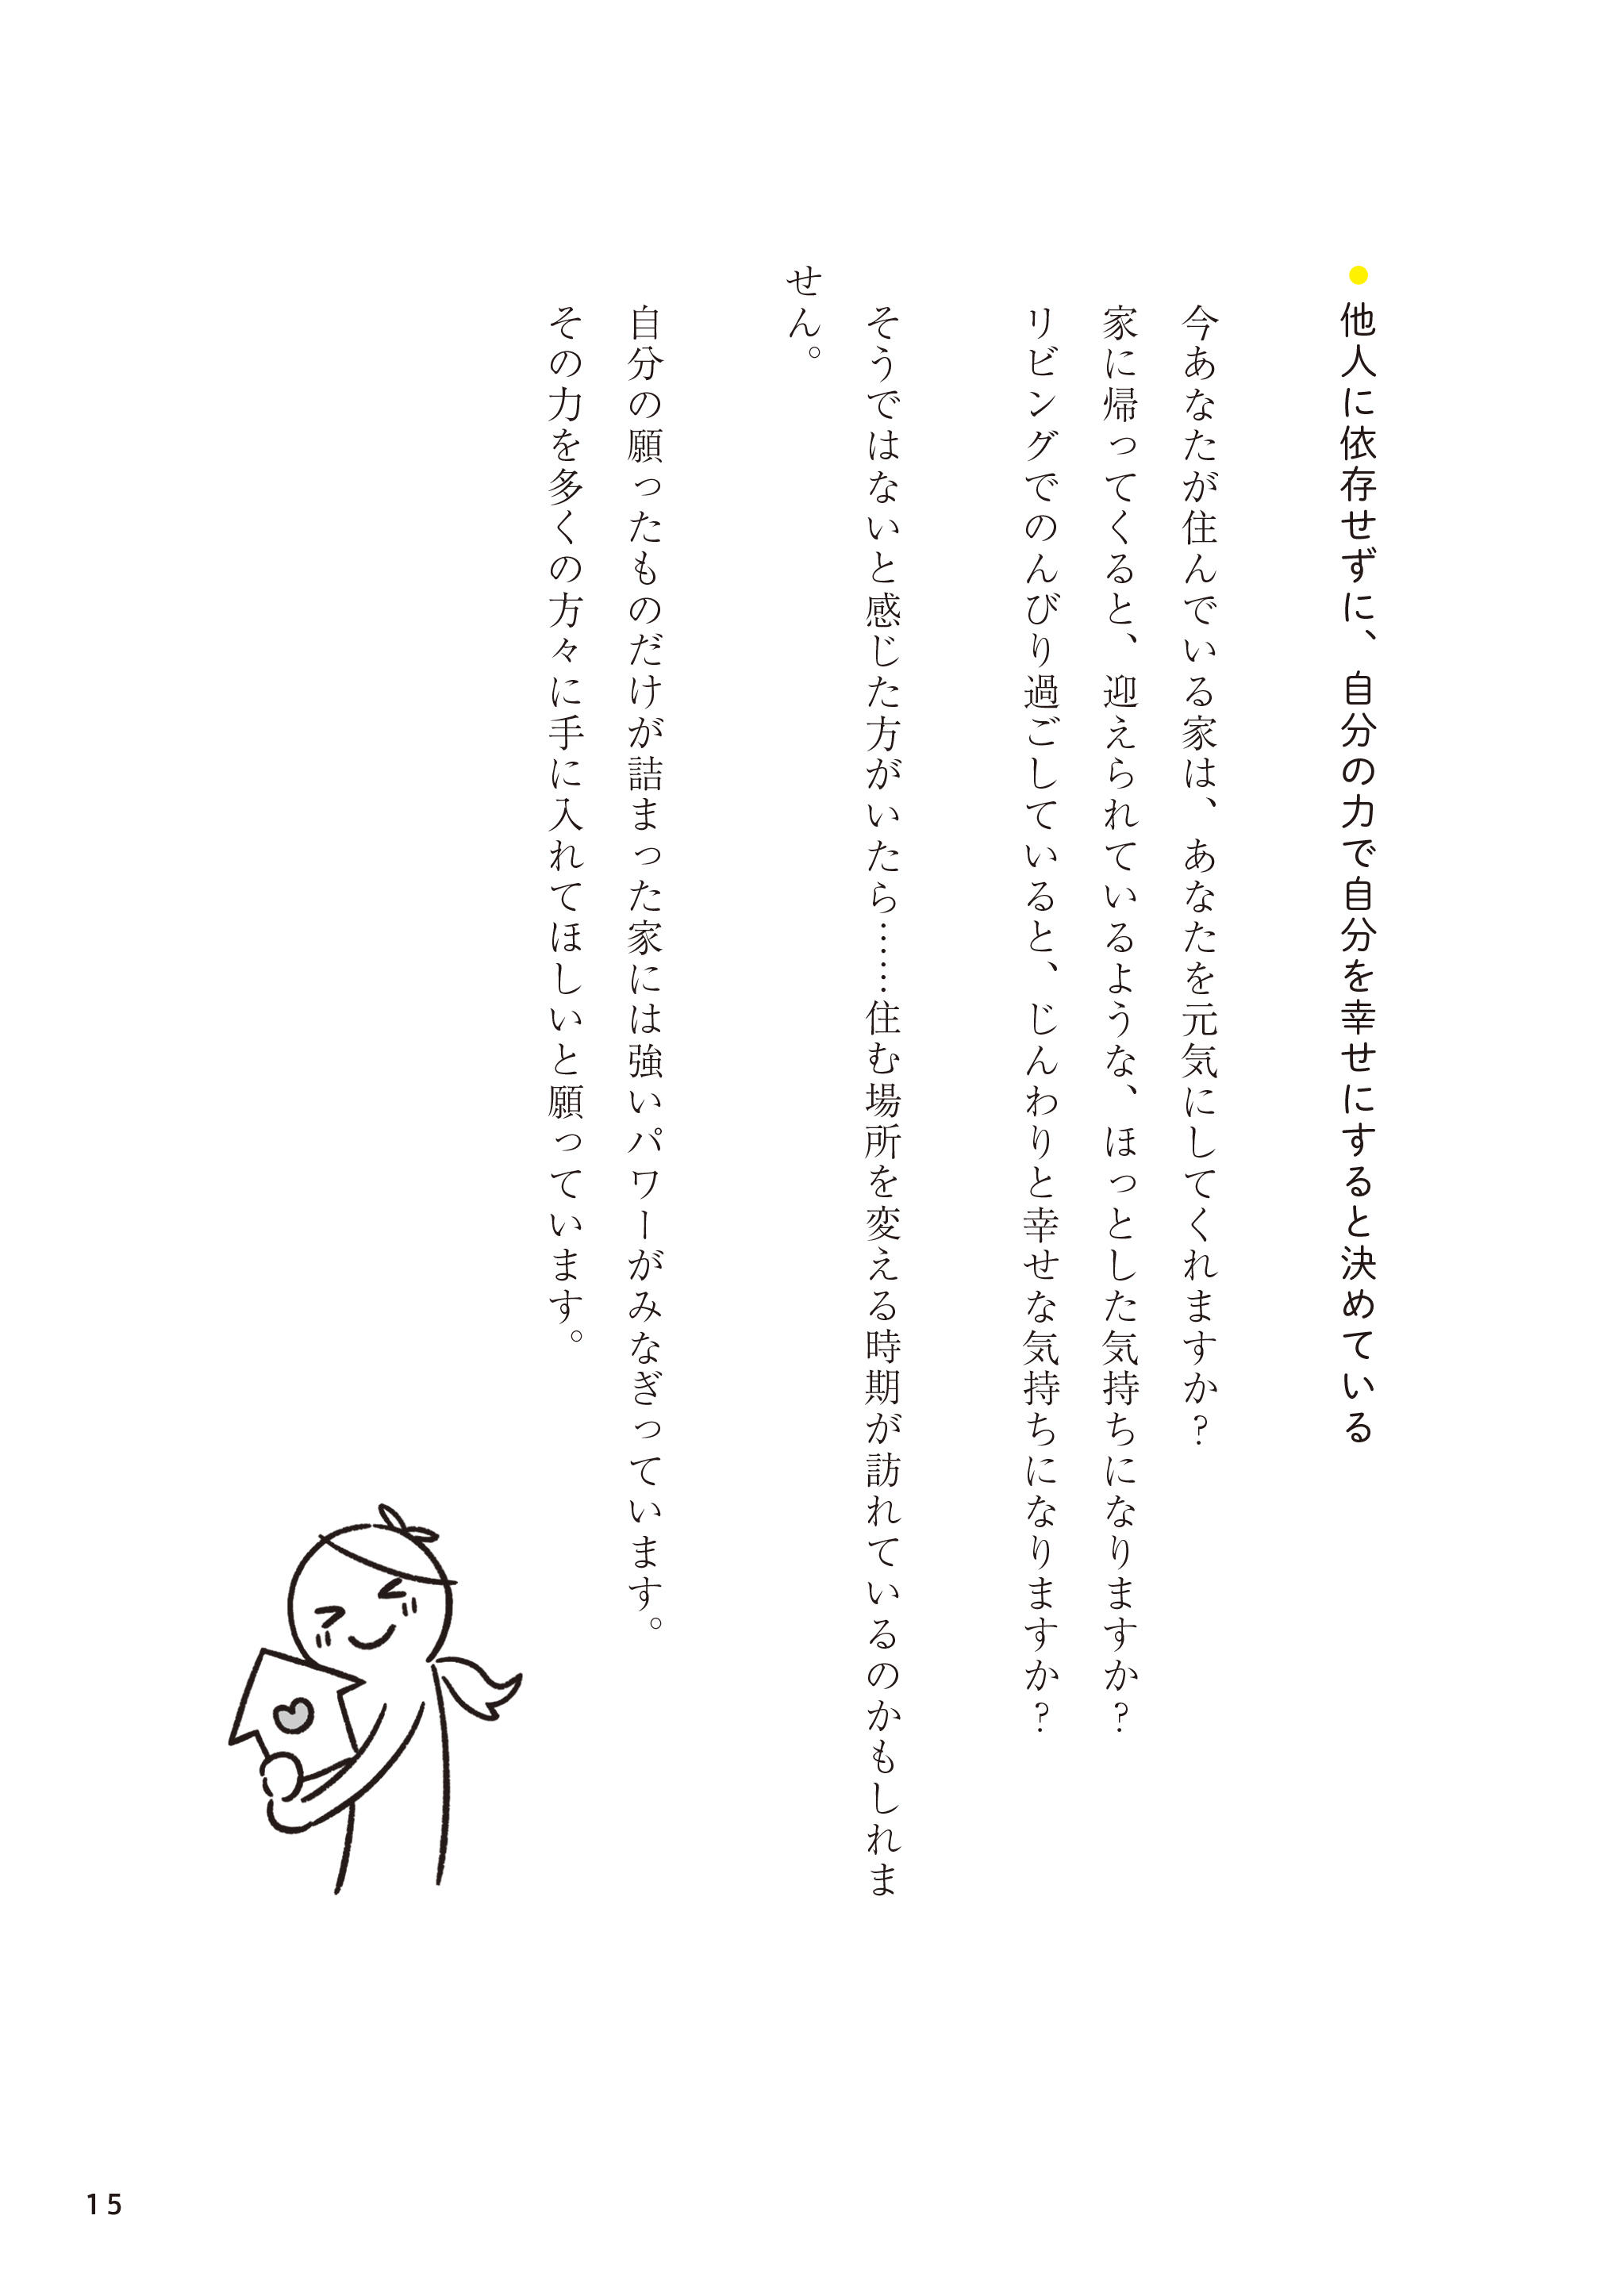 ●他人に依存せずに、自分の力で自分を幸せにすると決めている
今あなたが住んでいる家は、あなたを元気にしてくれますか?
家に帰ってくると、迎えられているような、ほっとした気持ちになりますか?
リビングでのんびり過ごしていると、じんわりと幸せな気持ちになりますか?
そうではないと感じた方がいたら……住む場所を変える時期が訪れているのかもしれま
せん。
自分の願ったものだけが詰まった家には強いパワーがみなぎっています。
その力を多くの方々に手に入れてほしいと願っています。
15